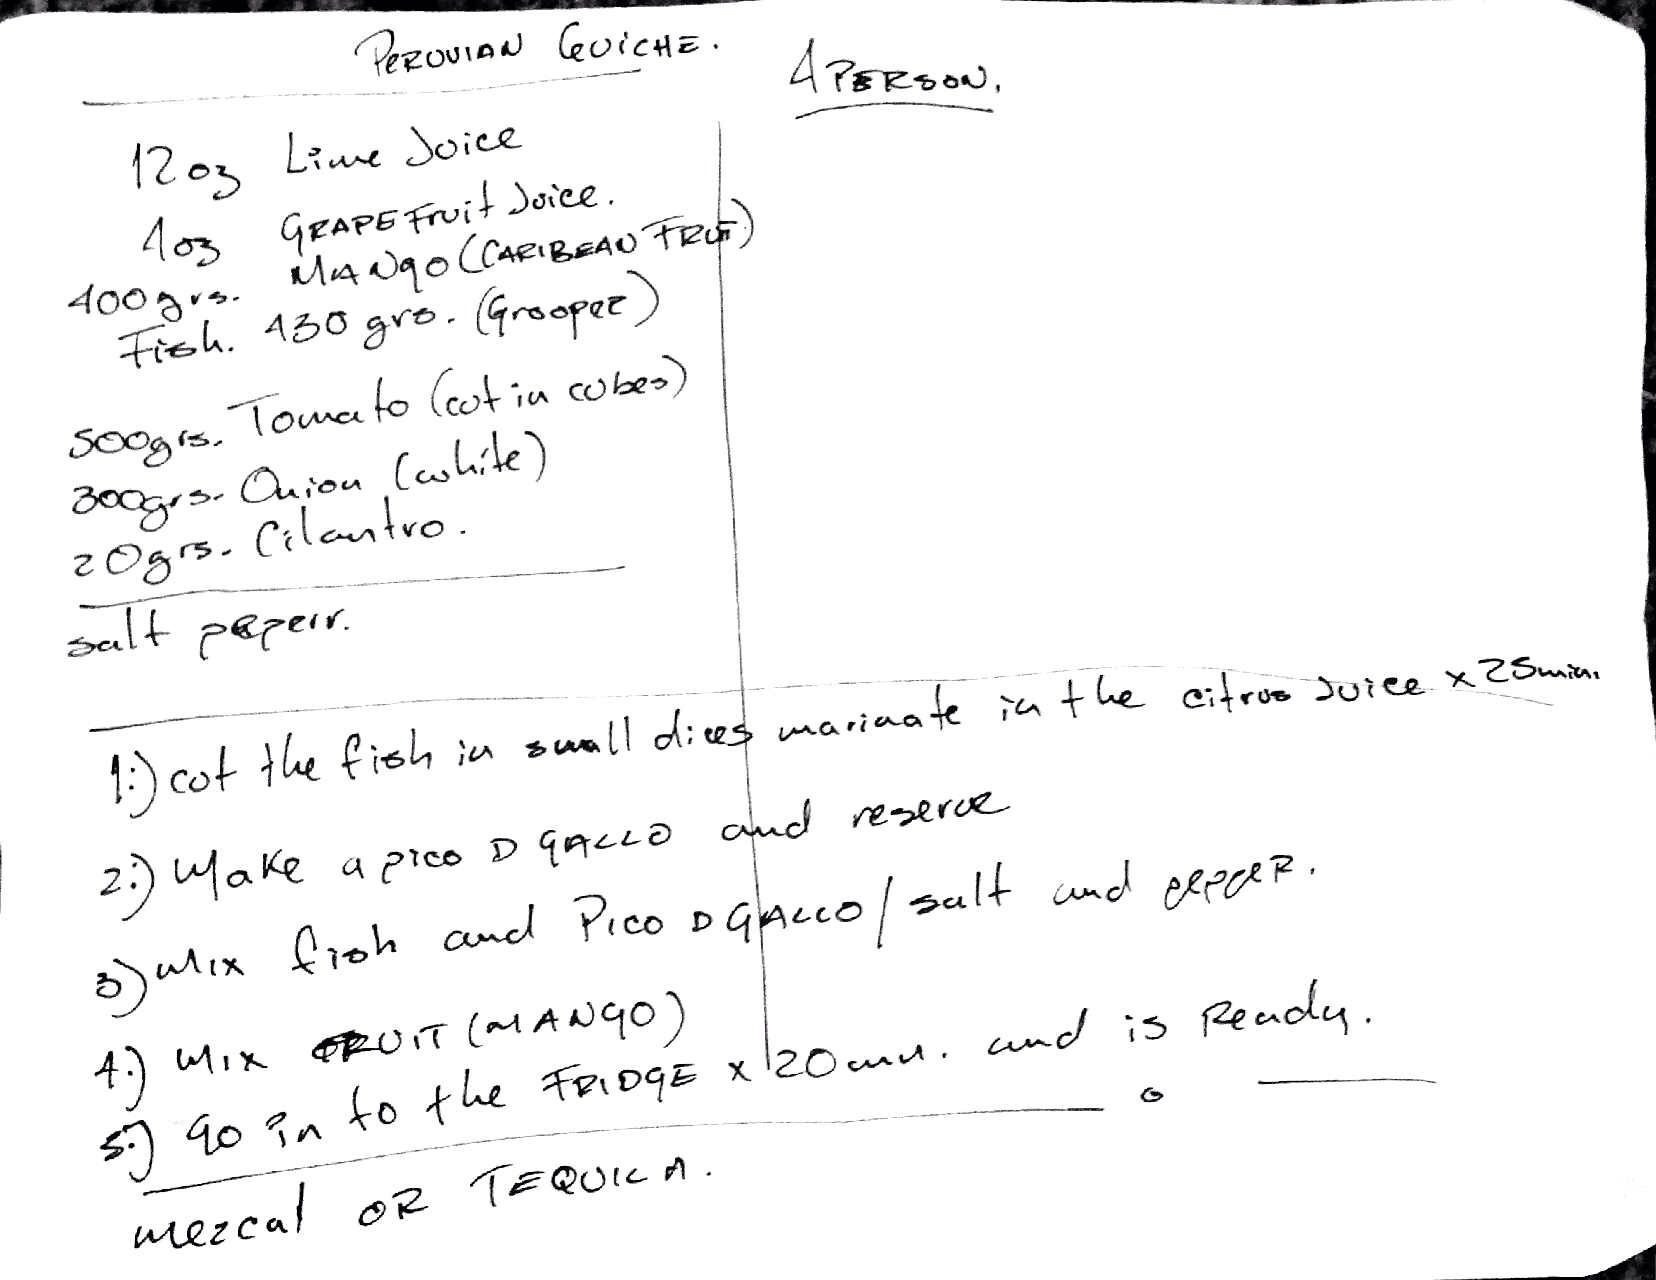 PERUVIAN CEVICHE.
4 PERSON.
12 oz Lime Juice
4 oz GRAPEFruit Juice.
400 grs. MANgo (CARIBEAN FRUT)
Fish. 430 grs. (Grooper)
500 grs. Tomato (cut in cubes)
300 grs. Onion (white)
20 grs. Cilantro.
salt peperr.
1:) cut the fish in small dices marinate in the citrus Juice x 25 min.
2:) Make a pico D gALLO and reserve
3) mix fish and Pico D GALLO / salt and pepper.
4:) mix FRUIT (MANGO)
5:) go in to the FRIDGE x 20 min. and is Ready.
mezcal OR TEQUILA.